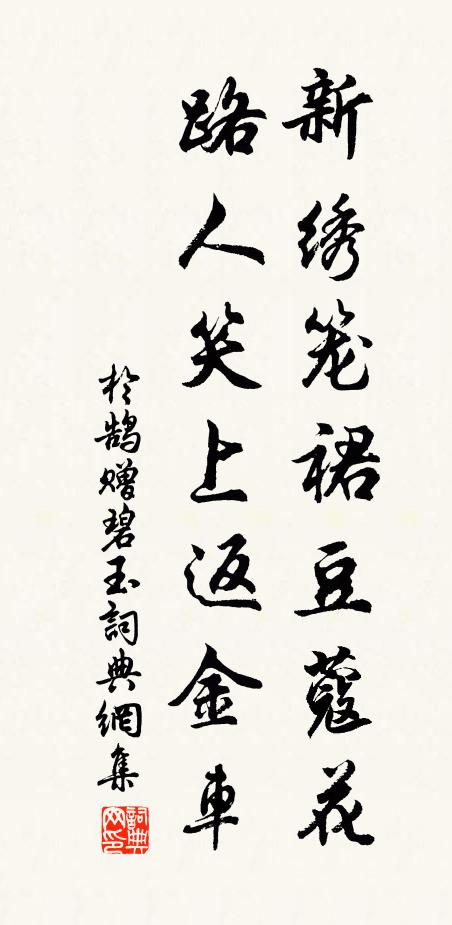 新绣笼裙豆蔻花
路人笑上返金車
於鹄赠碧玉詞典網集
詞典网印